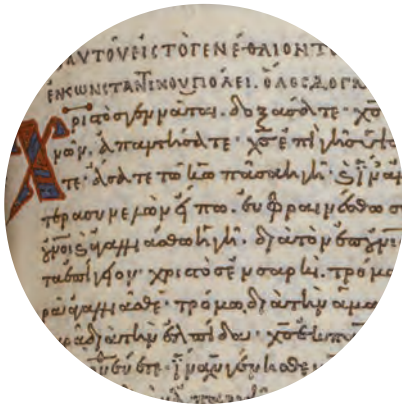 ΑΥΤΟΥ ΕΙΣ ΤΟ ΓΕΝΕΘΛΙΟΝ Τ
ΕΝ ΚΩΝΣΤΑΝΤΙΝΟΥΠΟΛΕΙ.
Χριστὸς γεννᾶται. δοξάσατε· χς
νῶν. ἀπαντήσατε· χς ἐπὶ γῆς
τε· ἄσατε τῶ κω πᾶσα ἡ γῆ· καὶ ἵν' ἀμ
τερα συνελὼν εἴπω. εὐφραινέσθω σ
οὐνοὶ καὶ ἀγαλλιάσθω ἡ γῆ. διὰ τὸν
τα ἐπίγειον· χριστὸς ἐν σαρκὶ. τρόμω
ρᾶ ἀγαλλιᾶσθε· τρόμω. διὰ τὴν ἁμα
ρᾶ διὰ τὴν ἐλπίδα· χς ἐκ
νεύετε· ἵνα χυ γένησθε